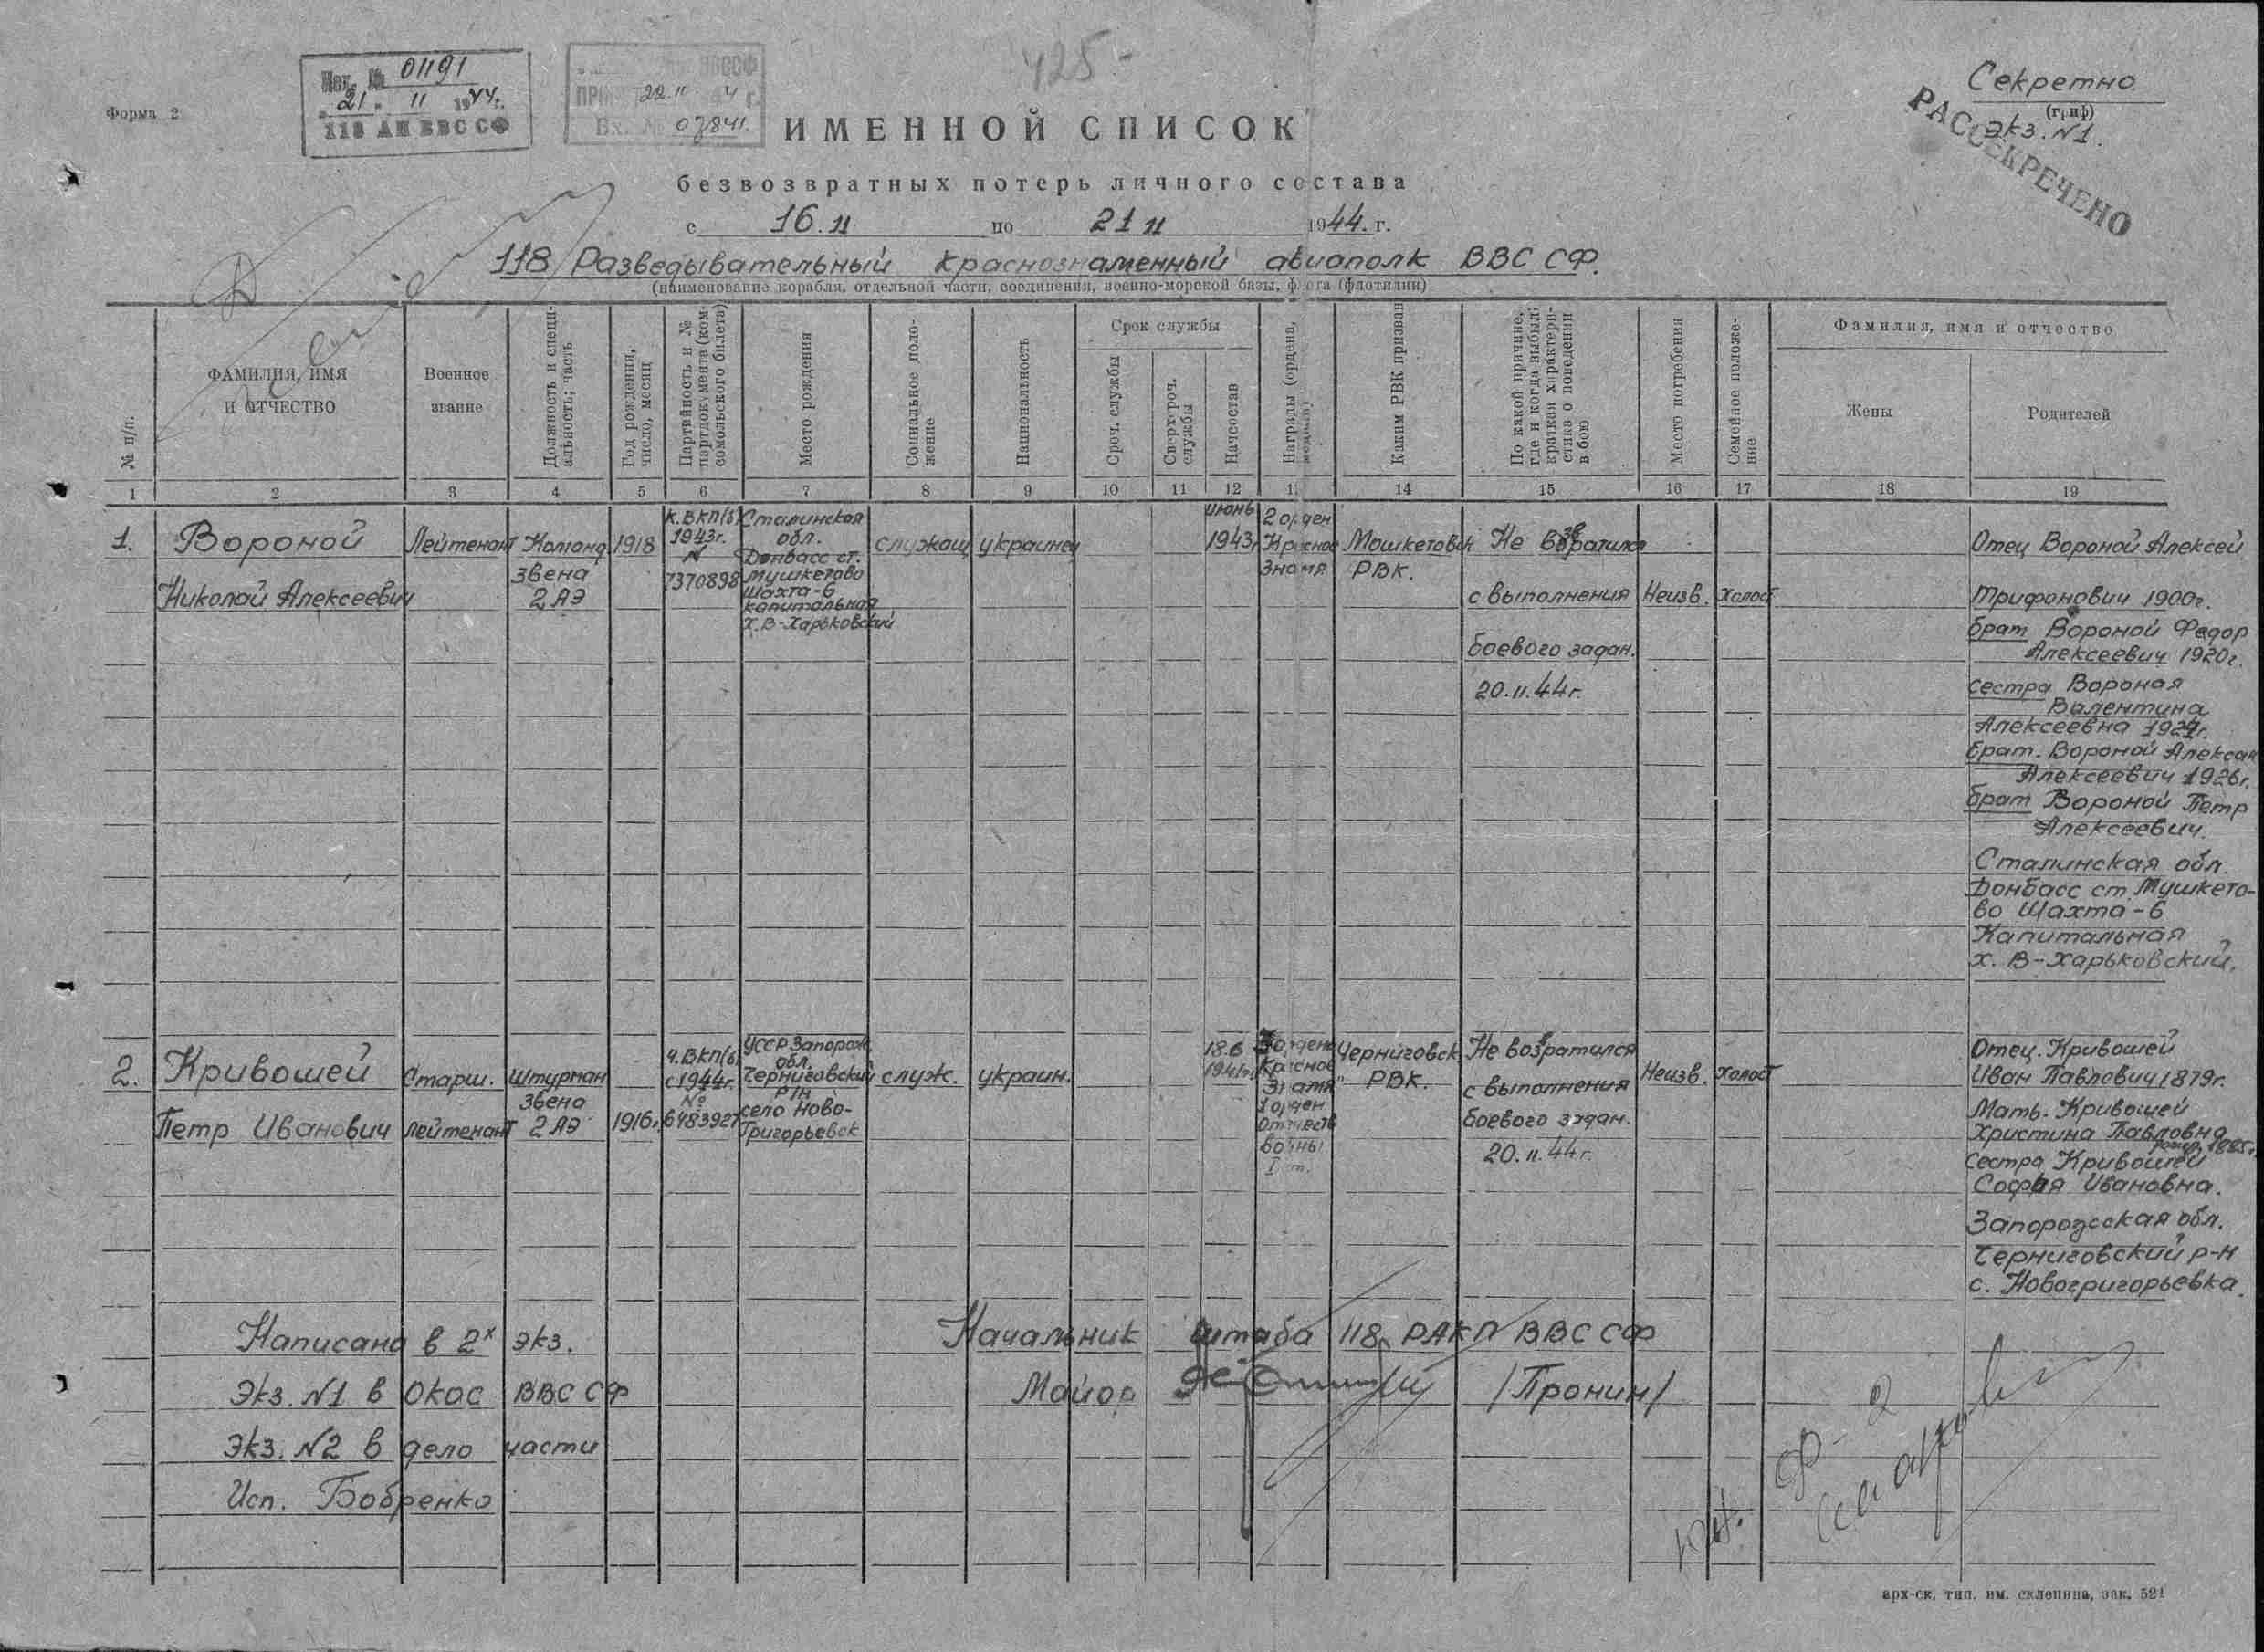 425-
Исх. № 01191
"21" 11 1944 г.
118 АП ВВС СФ
ВВССФ
22.11 4 г.
Вх. №
Форма 2
Секретно
(гриф)
экз. N1.
РАССЕКРЕЧЕНО
ИМЕННОЙ СПИСОК
безвозвратных потерь личного состава
с 16.11 по 21 11 1944. г.
118 Разведывательный Краснознаменный авиаполк ВВС СФ.
(наименование корабля, отдельной части, соединения, военно-морской базы, флота (флотилии)
№ п/п.
ФАМИЛИЯ, ИМЯ
И ОТЧЕСТВО
Военное
звание
Должность и специ-
альность; часть
Год рождения,
число, месяц
Партийность и №
партдокумента (ком-
сомольского билета)
Место рождения
Социальное поло-
жение
Национальность
Срок службы
Сроч. службы
Сверхсроч.
службы
Начсостав
Награды (ордена,
медали)
Каким РВК призван
По какой причине,
где и когда выбыл;
краткая характери-
стика о поведении
в бою
Место погребения
Семейное положе-
ние
Фамилия, имя и отчество
Жены
Родителей
1 2 3 4 5 6 7 8 9 10 11 12 14 15 16 17 18 19
1.
Вороной
Николай Алексеевич
Лейтенант
Команд
звена
2 АЭ
1918
К.ВКП(б)
1943г.
N
7370898
Сталинская
обл.
Донбасс ст.
Мушкетово
Шахта-6
капитальная
х.В-Харьковский
служащ
украинец
июнь
1943г
2 орден
Красное
Знамя
Мошкетовск
РВК.
Не возвратился
с выполнения
боевого задан.
20.11.44г.
Неизв.
холост
Отец Вороной Алексей
Трифонович 1900г.
брат Вороной Федор
Алексеевич 1920г.
сестра Вороная
Валентина
Алексеевна 1924г.
брат. Вороной Алексан
Алексеевич 1926г.
брат Вороной Петр
Алексеевич.
Сталинская обл.
Донбасс ст. Мушкето-
во Шахта-6
Капитальная
х. В-Харьковский.
2.
Кривошей
Петр Иванович
Старш.
лейтенант
Штурман
звена
2 АЭ
1916.
ч.ВКП(б)
с 1944г.
№
6483927
УССР Запорож.
обл.
Черниговский
Р/н
село Ново-
Григорьевск
служ.
украин.
18.6
1941г.
ордена
Красное
Знамя"
1 орден
Отечеств
войны
I ст.
Черниговск.
РВК.
Не возвратился
с выполнения
боевого задан.
20.11.44г.
Неизв.
холост
Отец. Кривошей
Иван Павлович 1879г.
Мать. Кривошей
Христина Павловна
рожд. 1885г.
Сестра Кривошей
София Ивановна.
Запорожская обл.
Черниговский р-н
с. Новогригорьевка.
Написано в 2х экз.
Экз. N1 в ОКОС ВВС СФ
Экз. N2 в дело части
Исп. Бобренко
Начальник штаба 118 РАКП ВВС СФ
Майор /Пронин/
арх-ск. тип. им. склепина, зак. 521